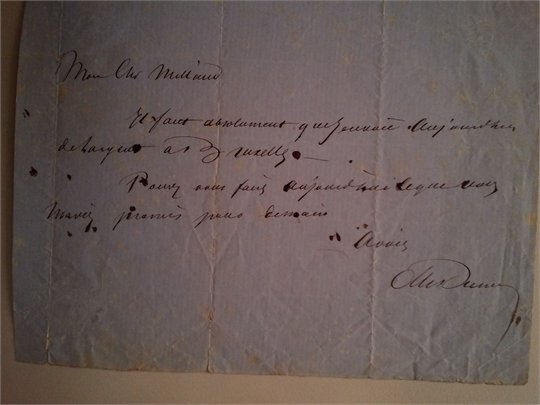 Mon Cher Millaud
Il faut absolument que j'envoie aujourd'hui
de l'argent à Bruxelles —
Pouvez vous faire aujourd'hui ce que vous
m'aviez promis pour demain
A vous
Alex Dumas